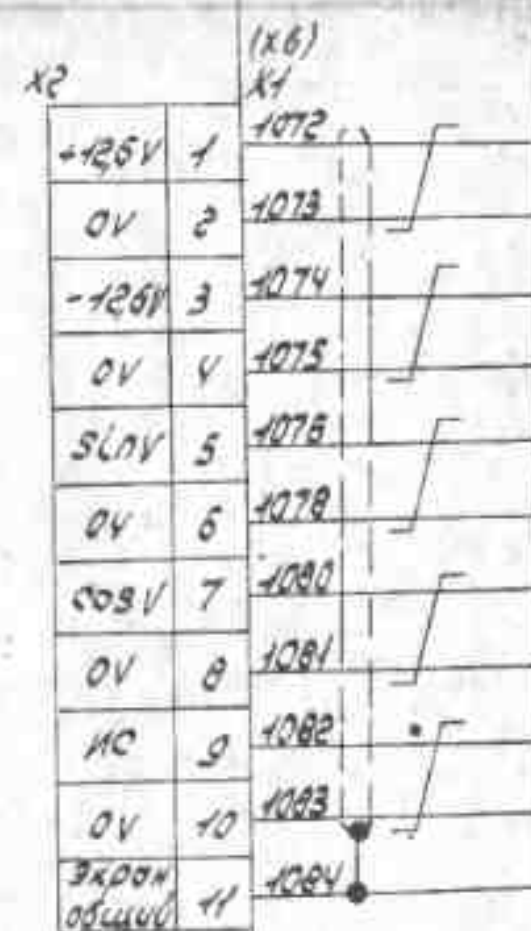 (X6)
X2 X1
+12,6V 1 1072
0V 2 1073
-12,6V 3 1074
0V 4 1075
sinV 5 1076
0V 6 1078
cosV 7 1080
0V 8 1081
ИС 9 1082
0V 10 1083
Экран
общий 11 1084